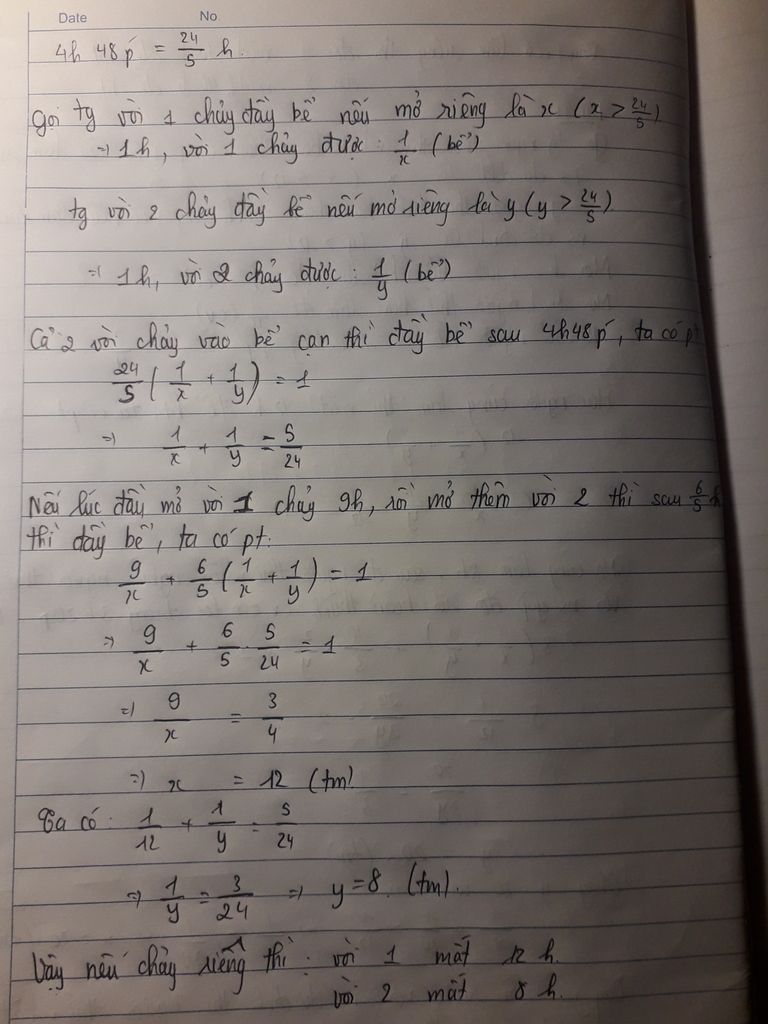 Date No.
4h 48p' = 24/5 h.
Gọi tg vòi 1 chảy đầy bể nếu mở riêng là x (x > 24/5)
⇒ 1h, vòi 1 chảy được: 1/x (bể)
tg vòi 2 chảy đầy bể nếu mở riêng là y (y > 24/5)
⇒ 1h, vòi 2 chảy được: 1/y (bể)
Cả 2 vòi chảy vào bể cạn thì đầy bể sau 4h48p', ta có pt
24/5 (1/x + 1/y) = 1
⇒ 1/x + 1/y = 5/24
Nếu lúc đầu mở vòi 1 chảy 9h, rồi mở thêm vòi 2 thì sau 6/5 h
thì đầy bể, ta có pt:
9/x + 6/5 (1/x + 1/y) = 1
⇒ 9/x + 6/5 . 5/24 = 1
⇒ 9/x = 3/4
⇒ x = 12 (tm)
Ta có: 1/12 + 1/y = 5/24
⇒ 1/y = 3/24 ⇒ y = 8 (tm).
Vậy nếu chảy riêng thì: vòi 1 mất 12 h.
vòi 2 mất 8 h.